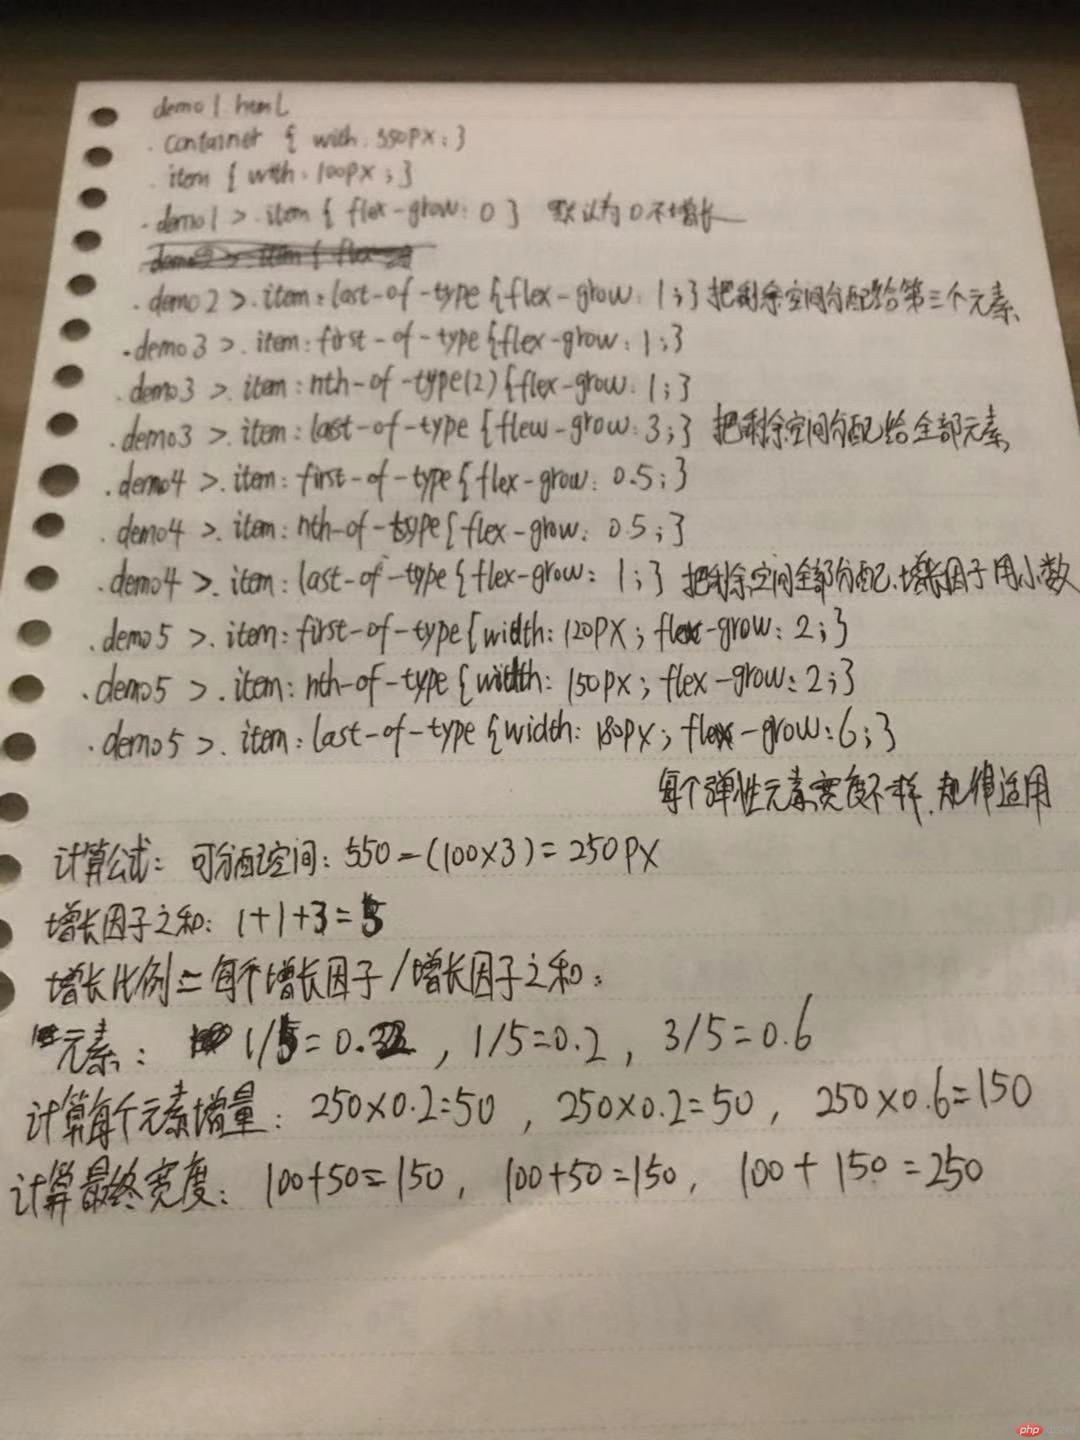 demo1.html
.container { with: 550px; }
.item { with: 100px; }
.demo1 >.item { flex-grow: 0 } 默认为0不增长
.demo2 >.item:last-of-type {flex-grow: 1;} 把剩余空间分配给第三个元素
.demo3 >.item:first-of-type {flex-grow: 1;}
.demo3 >.item:nth-of-type(2) {flex-grow: 1;}
.demo3 >.item:last-of-type {flew-grow: 3;} 把剩余空间分配给全部元素
.demo4 >.item:first-of-type {flex-grow: 0.5;}
.demo4 >.item:nth-of-type{flex-grow: 0.5;}
.demo4 >.item:last-of-type {flex-grow: 1;} 把剩余空间全部分配,增长因子用小数
.demo5 >.item:first-of-type{width:120px; flex-grow:2;}
.demo5 >.item:nth-of-type {width:150px; flex-grow:2;}
.demo5 >.item:last-of-type {width:180px; flex-grow:6;}
每个弹性元素宽度不一样,规律适用
计算公式: 可分配空间: 550-(100×3)=250px
增长因子之和: 1+1+3=5
增长比例=每个增长因子/增长因子之和:
元素: 1/5=0.2, 1/5=0.2, 3/5=0.6
计算每个元素增量: 250×0.2=50, 250×0.2=50, 250×0.6=150
计算最终宽度: 100+50=150, 100+50=150, 100+150=250
php